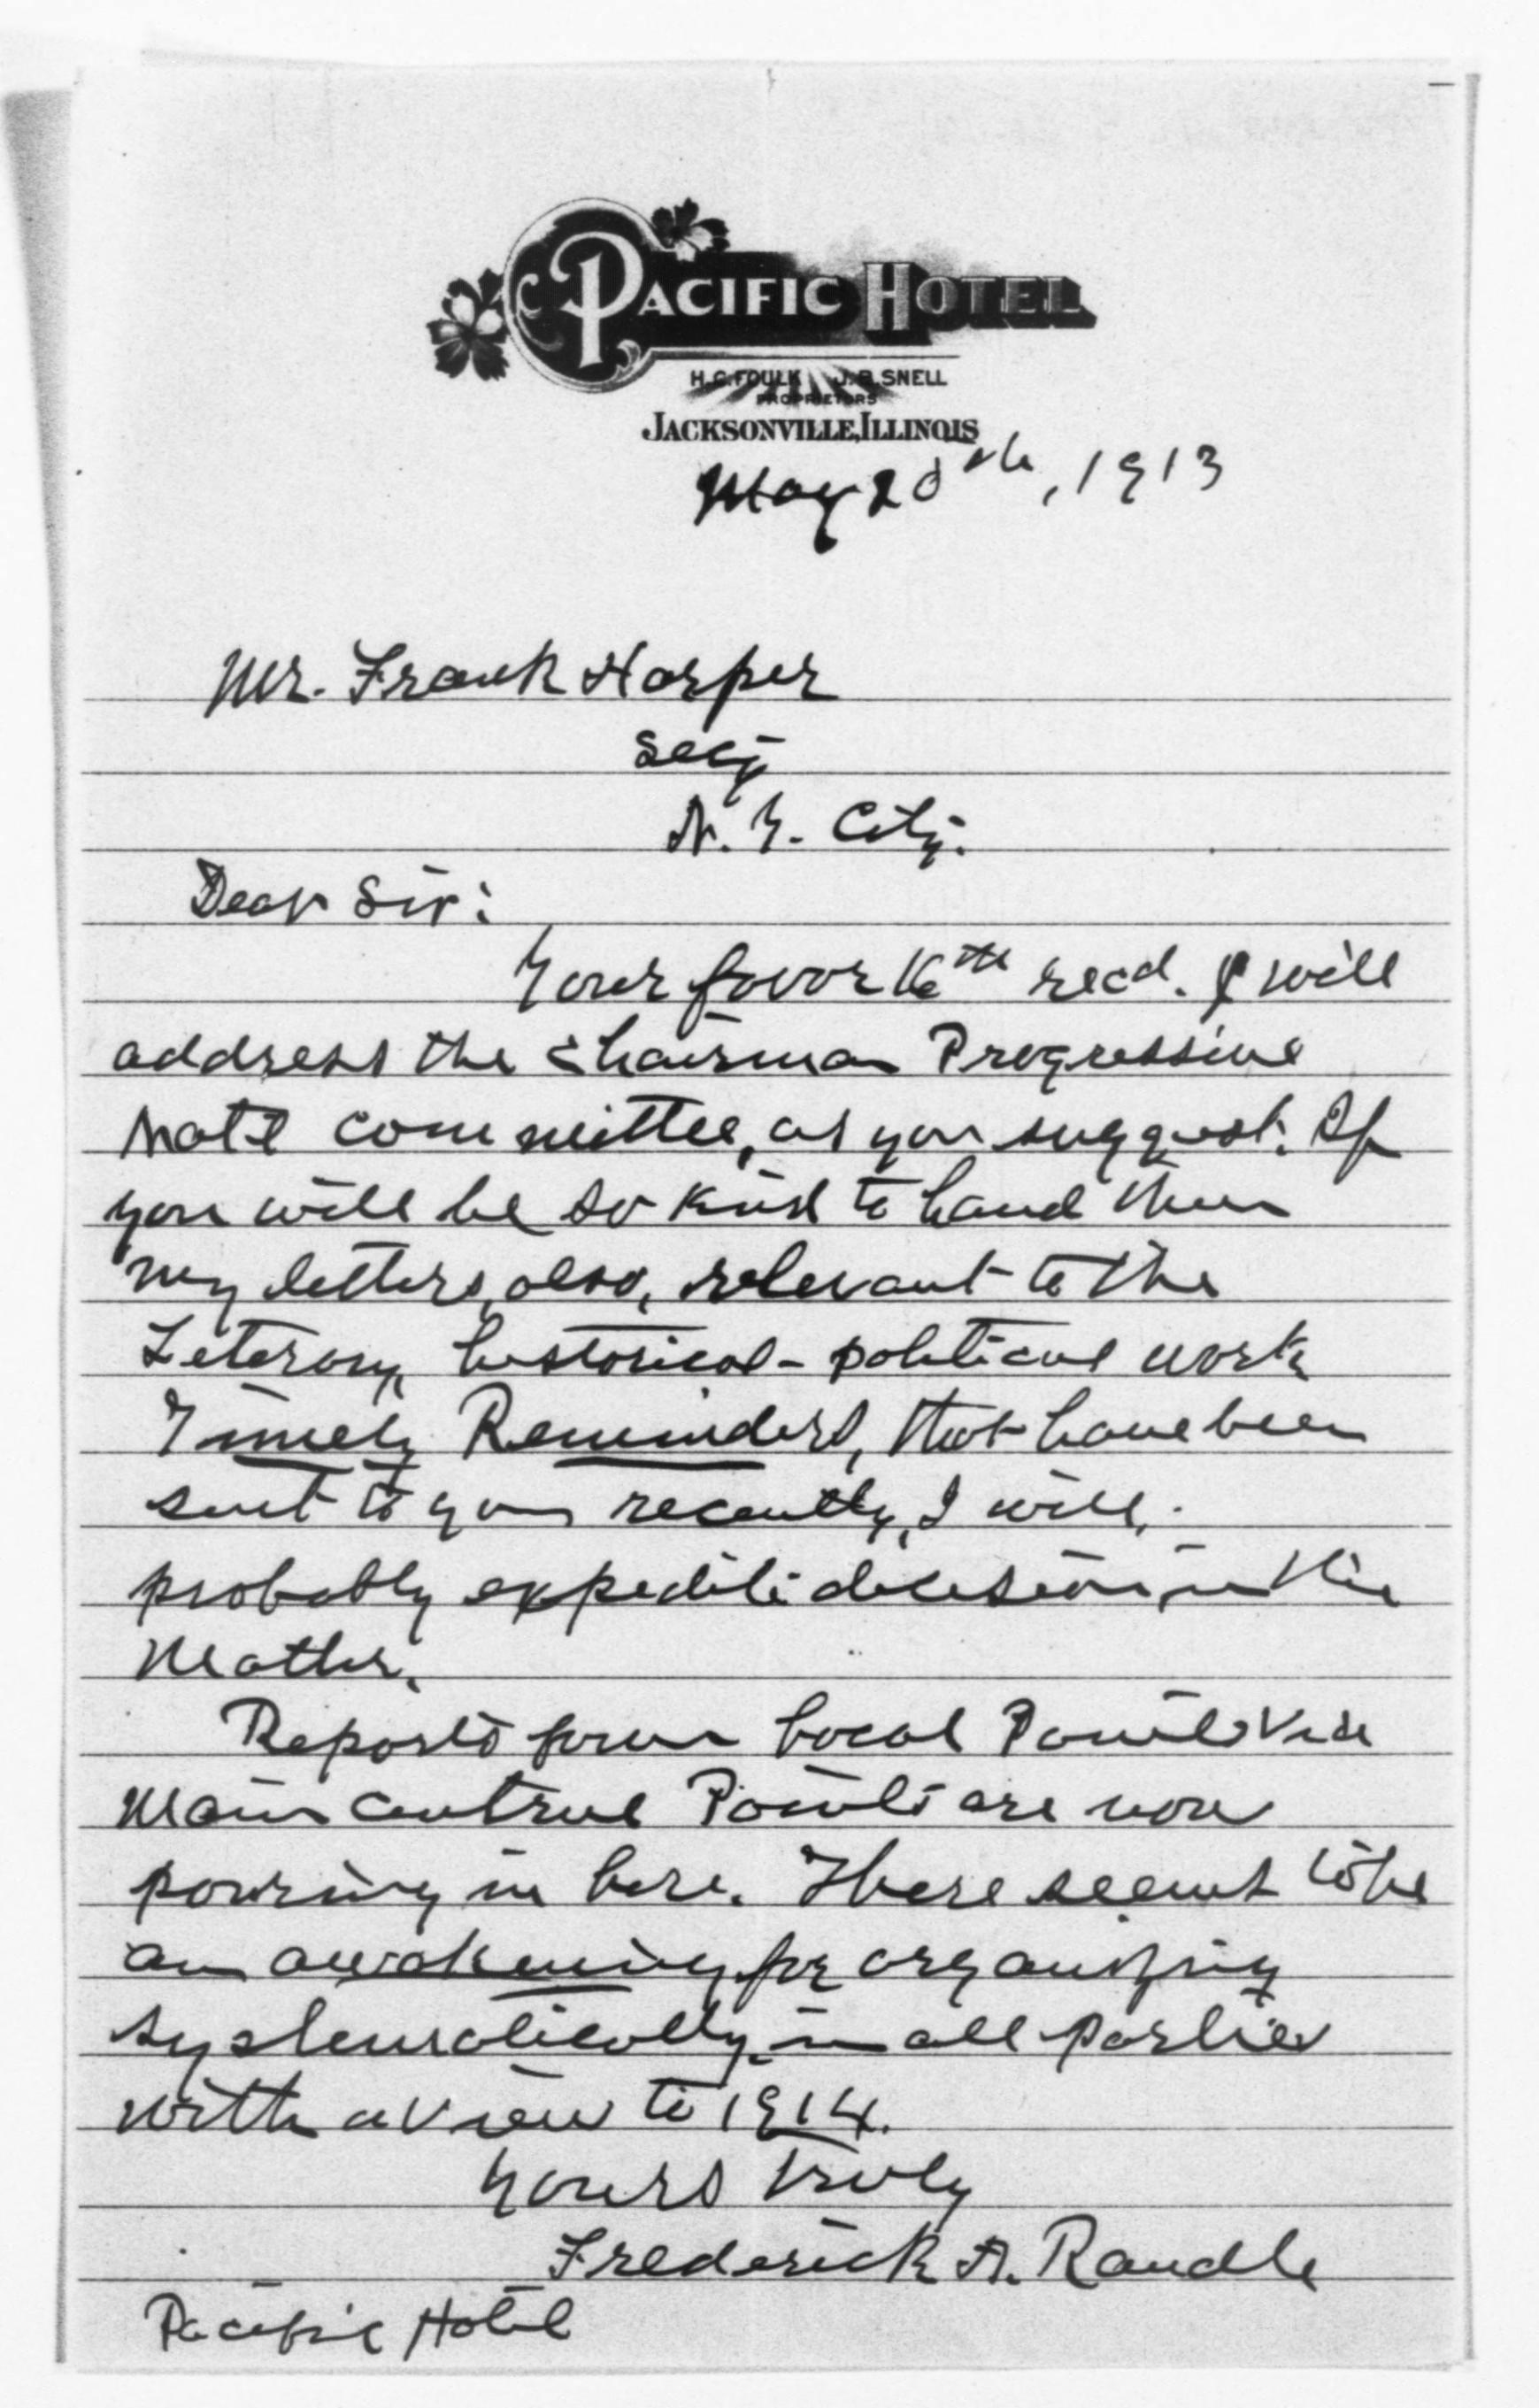 PACIFIC HOTEL
H.C. FOULK J.B. SNELL
PROPRIETORS
JACKSONVILLE, ILLINOIS
May 20th, 1913
Mr. Frank Harper
Secy
N. Y. City.
Dear Sir:
Your favor 16th recd. I will
address the chairman Progressive
Natl committee, as you suggest. If
you will be so kind to hand them
my letters, also, relevant to the
Literary, historical-political work
Timely Reminders, that have been
sent to you recently, I will,
probably expedite decision in the
matter.
Reports from local Points via
Main central Points are now
pouring in here. There seems to be
an awakening for organizing
systematically in all parties
with a view to 1914.
Yours truly
Frederick A. Randle
Pacific Hotel